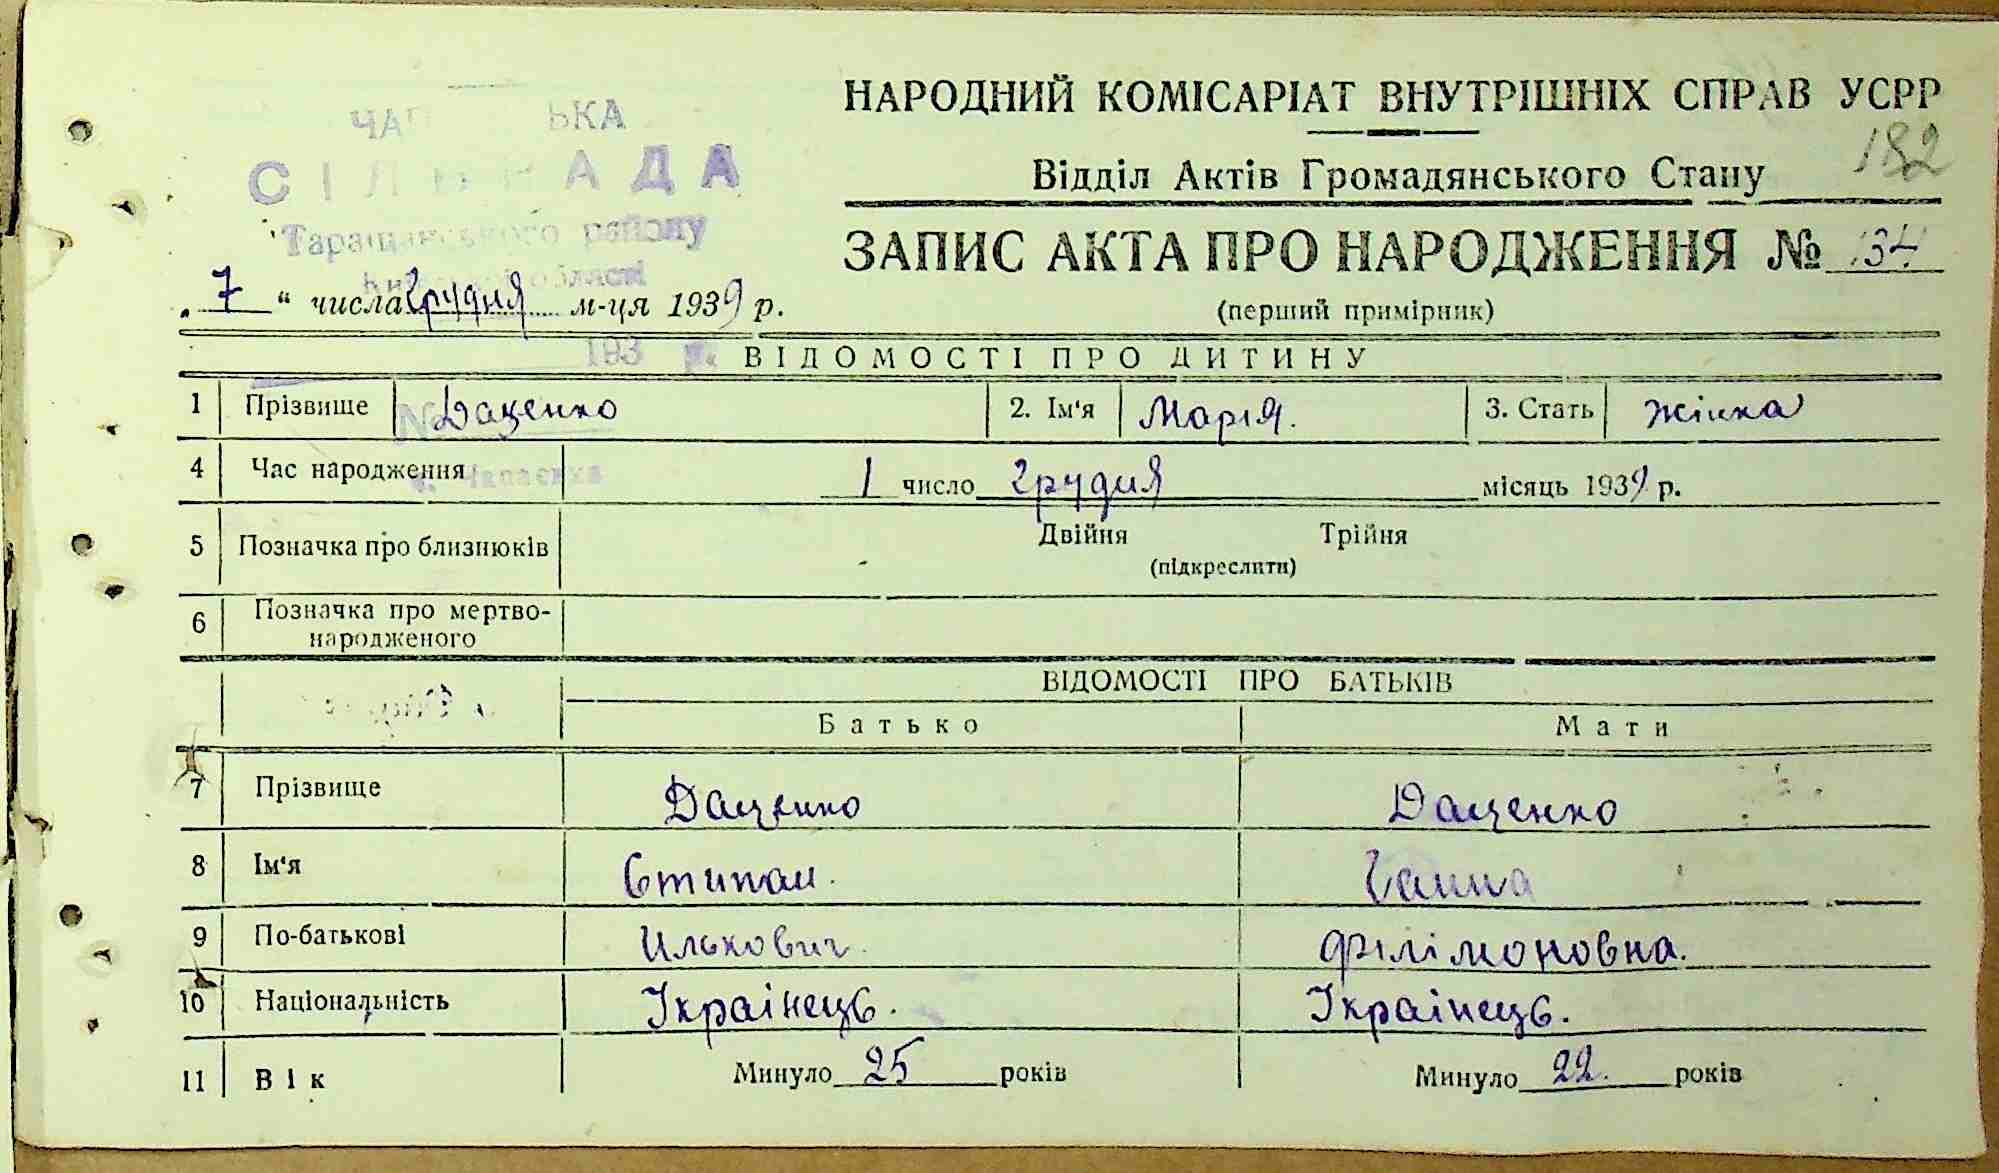 НАРОДНИЙ КОМІСАРІАТ ВНУТРІШНІХ СПРАВ УСРР
182
Відділ Актів Громадянського Стану
ЗАПИС АКТА ПРО НАРОДЖЕННЯ № 134
(перший примірник)
СІЛЬРАДА
Таращанського району
Київської області
193 р.
№
с. Чапаєвка
„ 7 “ числа грудня м-ця 1939 р.
ВІДОМОСТІ ПРО ДИТИНУ
1 Прізвище Даценко 2. Ім'я Марія. 3. Стать жінка
4 Час народження 1 число грудня місяць 1939 р.
5 Позначка про близнюків Двійня Трійня
(підкреслити)
6 Позначка про мертво-
народженого
ВІДОМОСТІ ПРО БАТЬКІВ
Батько Мати
7 Прізвище Даценко Даценко
8 Ім'я Степан. Ганна
9 По-батькові Илькович. Філімоновна.
10 Національність Українець. Українець.
11 Вік Минуло 25 років Минуло 22. років